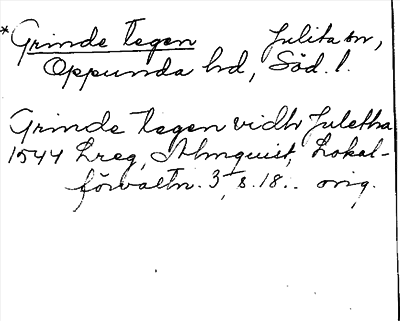 *Grinde tegen Julita sn,
Oppunda hd, Söd. l.
Grinde tegen vidh Juletha
1544 Lreg, Almquist, Lokal-
förvaltn. 3, s. 18.. orig.